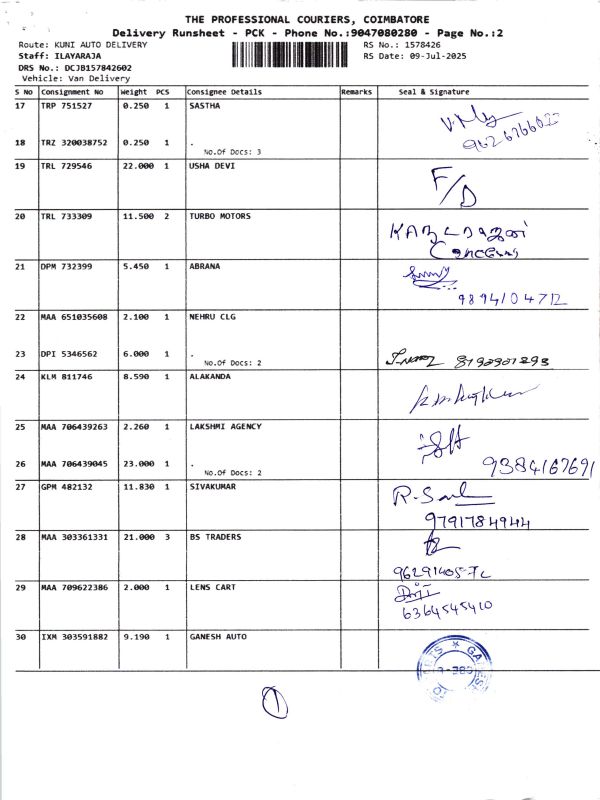 THE PROFESSIONAL COURIERS, COIMBATORE
Delivery Runsheet - PCK - Phone No.:9047080280 - Page No.:2
Route: KUNI AUTO DELIVERY
RS No.: 1578426
Staff: ILAYARAJA
RS Date: 09-Jul-2025
DRS No.: DCJB157842602
Vehicle: Van Delivery
S No Consignment No Weight PCS Consignee Details Remarks Seal & Signature
17 TRP 751527 0.250 1 SASTHA
18 TRZ 320038752 0.250 1 .
No.Of Docs: 3
19 TRL 729546 22.000 1 USHA DEVI
F/D
20 TRL 733309 11.500 2 TURBO MOTORS
21 DPM 732399 5.450 1 ABRANA
9894104712
22 MAA 651035608 2.100 1 NEHRU CLG
23 DPI 5346562 6.000 1 .
No.Of Docs: 2
24 KLM 811746 8.590 1 ALAKANDA
25 MAA 706439263 2.260 1 LAKSHMI AGENCY
26 MAA 706439045 23.000 1 .
9384167691
No.Of Docs: 2
27 GPM 482132 11.830 1 SIVAKUMAR
9791784944
28 MAA 303361331 21.000 3 BS TRADERS
29 MAA 709622386 2.000 1 LENS CART
6364545410
30 IXM 303591882 9.190 1 GANESH AUTO
1